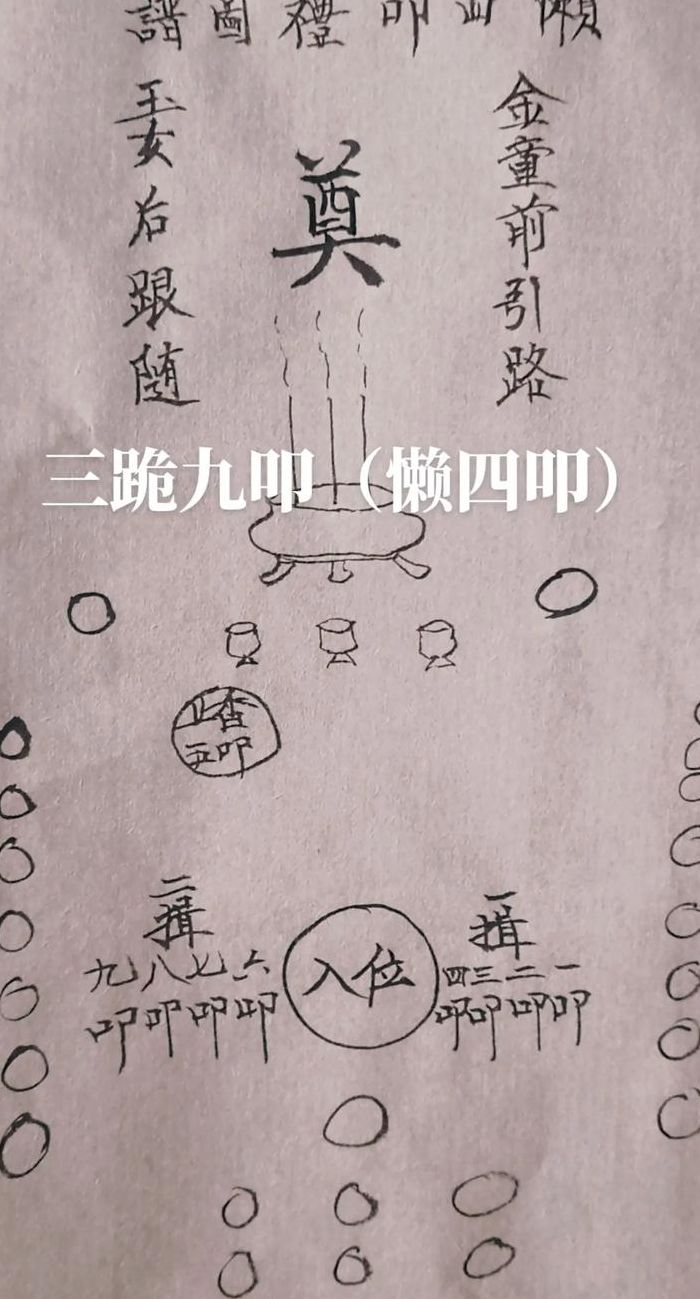 懶四叩禮圖譜
金童前引路
奠
玉女后跟随
三跪九叩（懒四叩）
上香
五叩
一揖
一叩
二叩
三叩
四叩
入位
二揖
六叩
七叩
八叩
九叩